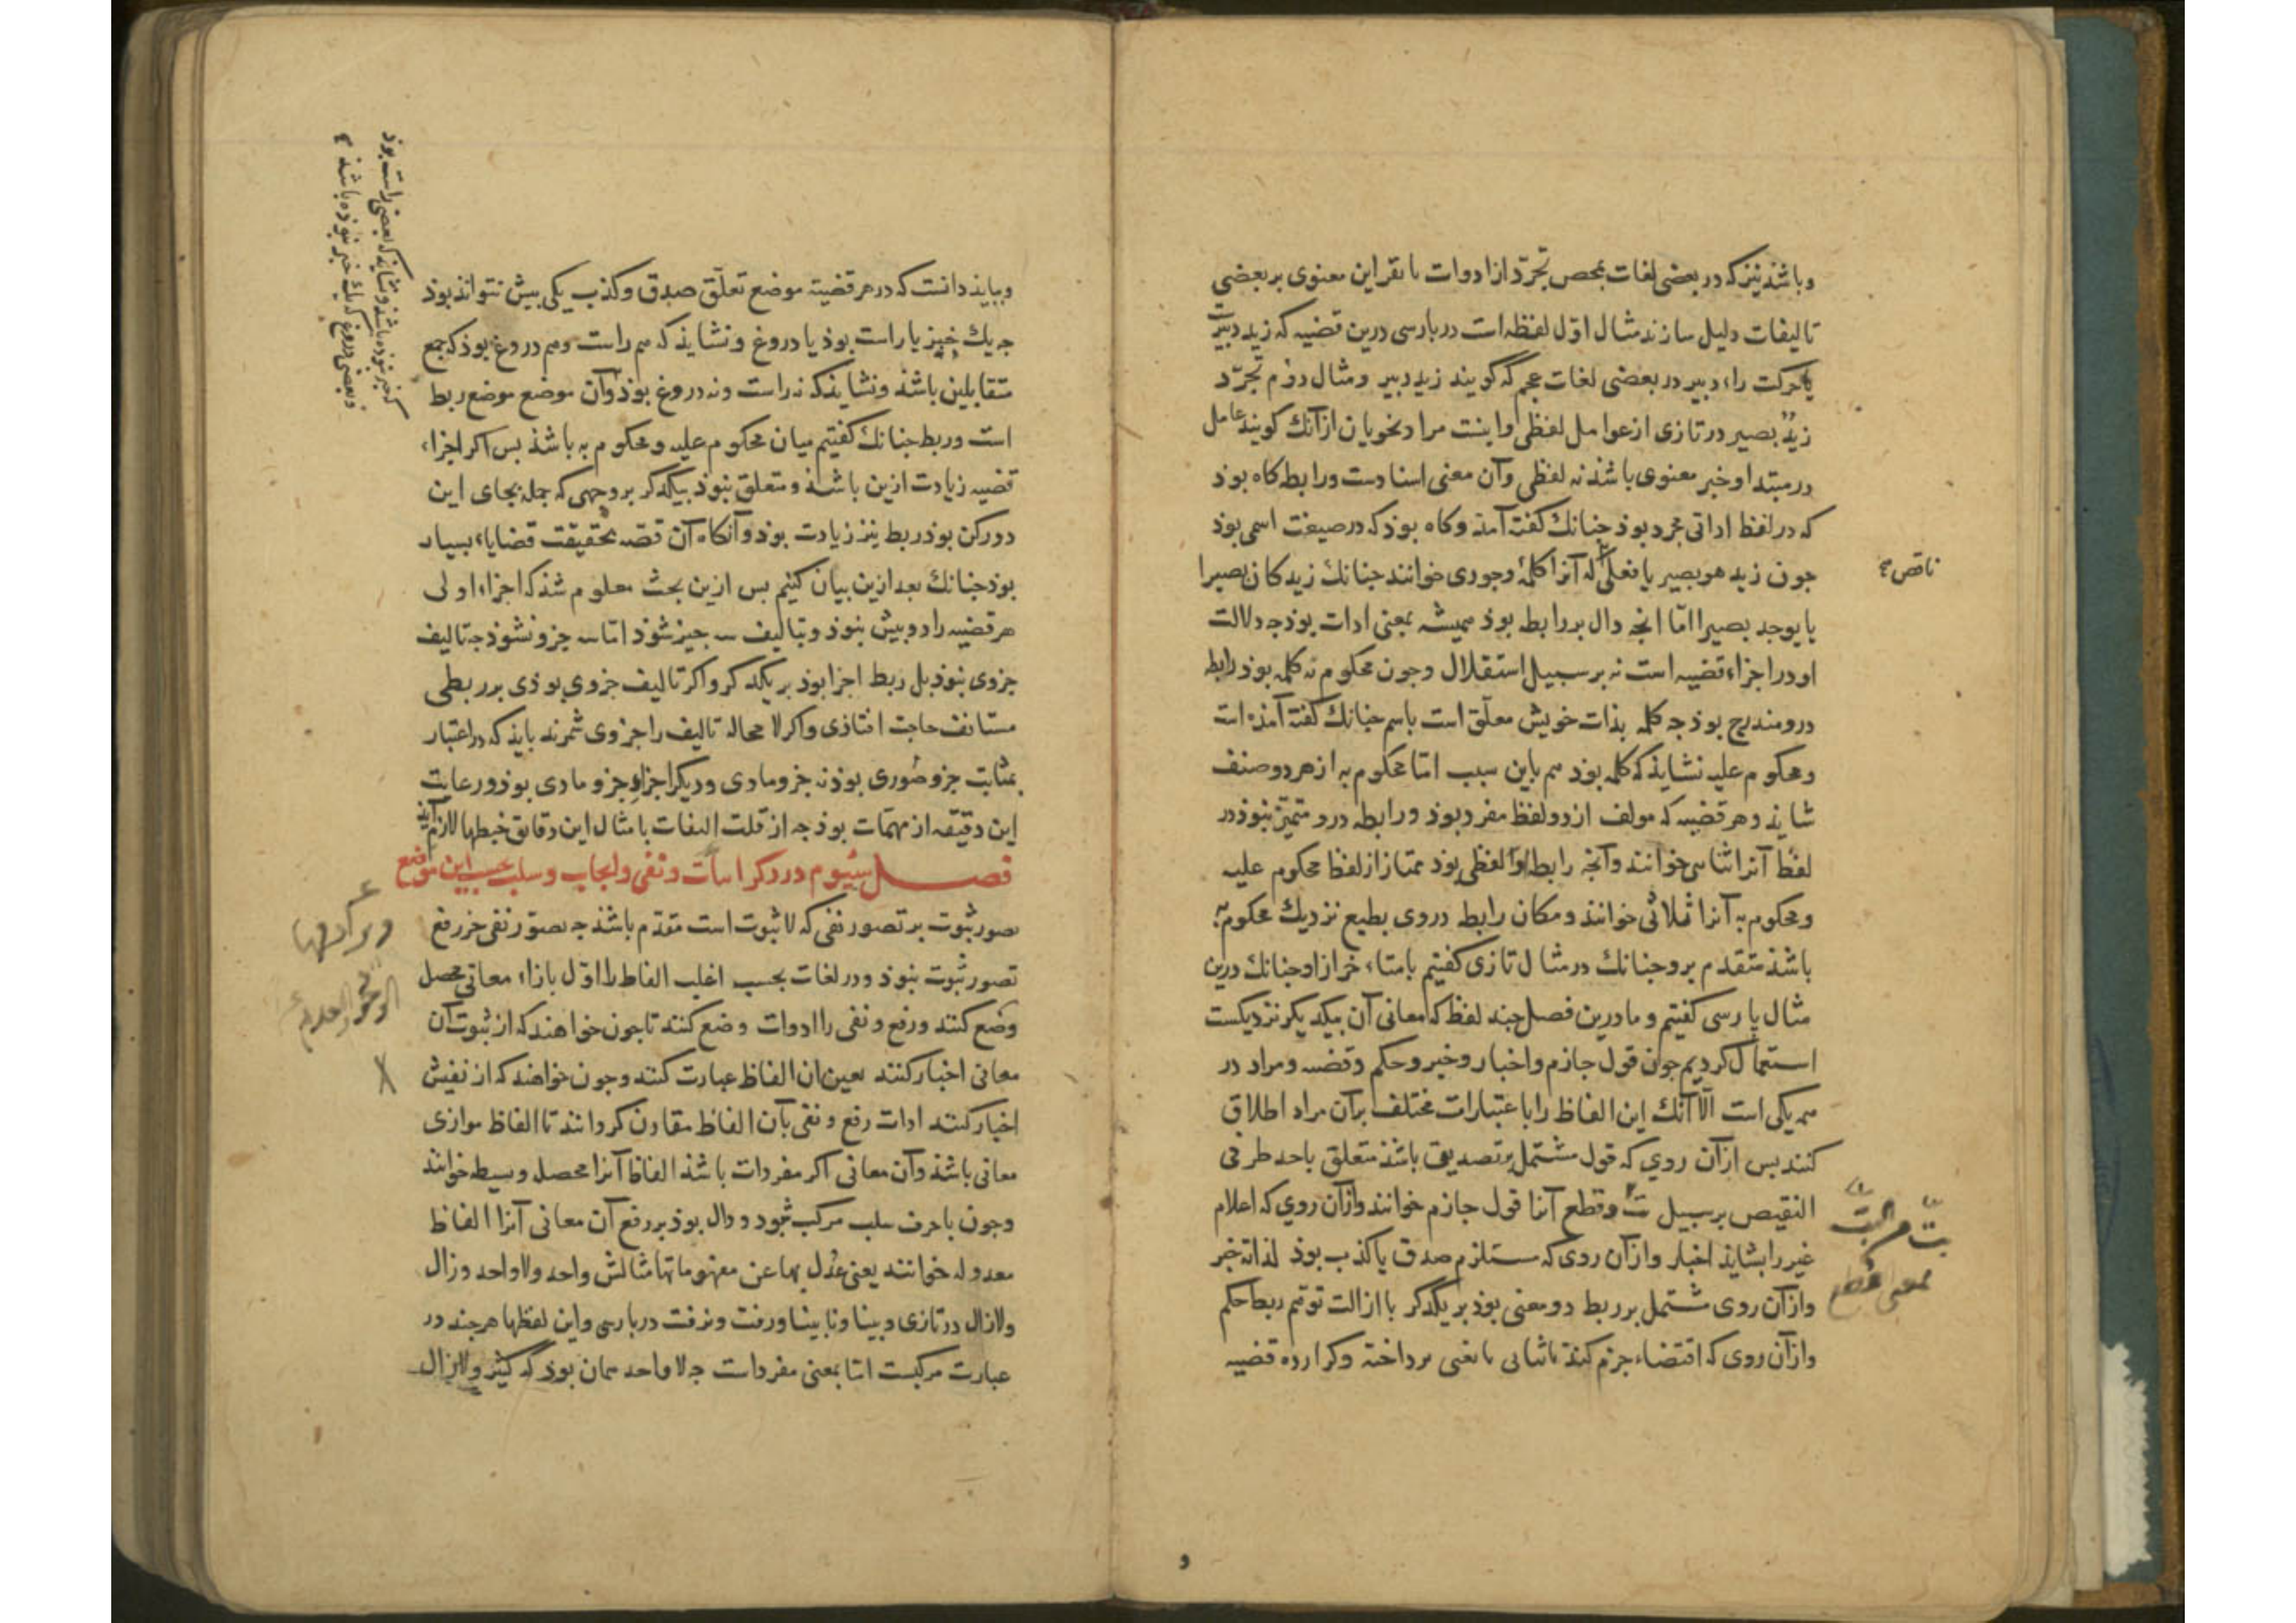 وباشذ نیز که در بعضی لغات بمحض تجرّد از ادوات با تقراین معنوی بر بعضی
تالیفات دلیل سازند مثال اوّل لفظه است در پارسی درین قضیه که زید دبیرست
یا حرکت راء دبیر در بعضی لغات عجم که گویند زید دبیر ومثال دوم تجرّد
زیدٌ بصیر در تازی از عوامل لفظی واینست مراد نحویان ازآنک کویند عامل
در مبتدا وخبر معنوی باشذ نه لفظی وآن معنی اسنادست ورابط کاه بوذ
که در لفظ اداتی مجرد بوذ جنانك کفته آمذ وکاه بوذ که در صیغت اسمی بوذ
جون زید هو بصیر یا فعلی که آنرا کلمهٔ وجودی خوانند جنانك زید کان بصیرا
ناقص
یا یوجد بصیرا امّا انجه دال بر رابط بوذ همیشه بمعنی ادات بوذ جه دلالت
او در اجزاء قضیه است نه بر سبیل استقلال وجون محکوم به کلمه بوذ رابطه
درو مندرج بوذ جه کلمه بذات خویش معلّق است باسم جنانك کفته آمذه است
ومحکوم علیه نشایذ که کلمه بوذ هم باین سبب امّا محکوم به از هر دو صنف
شایذ وهر قضیه که مولف از دو لفظ مفرد بوذ ورابطه درو متمیّز نبوذ در
لفظ آنرا ثنائی خوانند وآنجه رابطه او لفظی بوذ ممتاز از لفظ محکوم علیه
ومحکوم به آنرا ثلاثی خوانند ومکان رابط در وی بطبع نزدیك محکوم به
باشذ متقدم برو جنانك در مثال تازی کفتیم یا متاخر ازاو جنانك درین
مثال پارسی کفتیم وما درین فصل جند لفظ که معانی آن بیکدیکر نزدیکست
استعمال کردیم جون قول جازم واخبار وخبر وحکم وقضیه ومراد در
همه یکی است الّا آنك این الفاظ را باعتبارات مختلف برآن مراد اطلاق
کنند بس ازآن روی که قول مشتمل بر تصدیق باشذ متعلق باحد طرفی
النقیض بر سبیل بتّ وقطع آنرا قول جازم خوانند وازآن روی که اعلام
بتّ
بمعنی قطع
غیر را بشایذ اخبار وازآن روی که مستلزم صدق یا کذب بوذ لذاته خبر
وازآن روی مشتمل بر ربط دو معنی بوذ بر یکدکر با ازالت توهّم ربط حکم
وازآن روی که اقتضاء جزم کند باثباتی یا نفیی برداخته وکزارده قضیه
وببایذ دانست که در هر قضیه موضع تعلّق صدق وکذب یکی بیش نتواند بوذ
جه یك خبر یا راست بوذ یا دروغ ونشایذ که هم راست وهم دروغ بوذ که جمع
متقابلین باشذ ونشایذ که نه راست ونه دروغ بوذ وآن موضع موضع ربط
که خبر نبوذه باشذ ونشایذ که بعضی راست بوذ
وبعضی دروغ که یك خبر نبوذه باشذ
است وربط جنانك کفتیم میان محکوم علیه ومحکوم به باشذ بس اکر اجزاء
قضیه زیادت ازین باشذ ومتعلق نبوذ بیکدکر بر وجهی که جمله بجای این
دو رکن بوذ ربط نیز زیادت بوذ وآنکاه آن قضیه بحقیقت قضایاء بسیار
بوذ جنانك بعد ازین بیان کنیم بس ازین بحث معلوم شذ که اجزاء اولی
هر قضیه را دو بیش نبوذ وبتالیف سه جیز شوذ امّا سه جزو نشوذ جه تالیف
جزوی نبوذ بل ربط اجزا بوذ بر یکدکر واکر تالیف جزوی بوذی بر ربطی
مستانف حاجت افتاذی واکر لا محاله تالیف را جزوی شمرند بایذ که در اعتبار
بمثابت جزو صوری بوذ نه جزو مادی ودیکر اجزا جزو مادی بوذ ورعایت
این دقیقه از مهمّات بوذ جه از قلت التفات بامثال این دقایق خبطها لازم آیذ
فصل سیوم در ذکر اثبات ونفی وایجاب وسلب بحسب این موضع
تصور ثبوت بر تصور نفی که لا ثبوت است مقدم باشذ جه تصور نفی جز رفع
تصور ثبوت نبوذ ودر لغات بحسب اغلب الفاظ را اوّل بازاء معانی محصل
وضع کنند ورفع ونفی را ادوات وضع کنند تا جون خواهند که از ثبوت آن
معانی اخبار کنند بعین ان الفاظ عبارت کنند وجون خواهند که از نفیش
اخبار کنند ادات رفع ونفی بآن الفاظ مقارن کردانند تا الفاظ موازی
معانی باشذ وآن معانی اکر مفردات باشذ الفاظ آنرا محصل وبسیط خوانند
وجون با حرف سلب مرکب شوذ ودال بوذ بر رفع آن معانی آنرا الفاظ
معدوله خوانند یعنی عُدل بها عن مفهوماتها مثالش واحد ولا واحد وزال
ولازال در تازی وبینا ونابینا ورفت ونرفت در پارسی واین لفظها هرجند در
عبارت مرکبست امّا بمعنی مفردات جه لا واحد همان بوذ که کثیر ولا زال